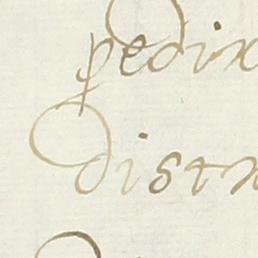 pedix
distn